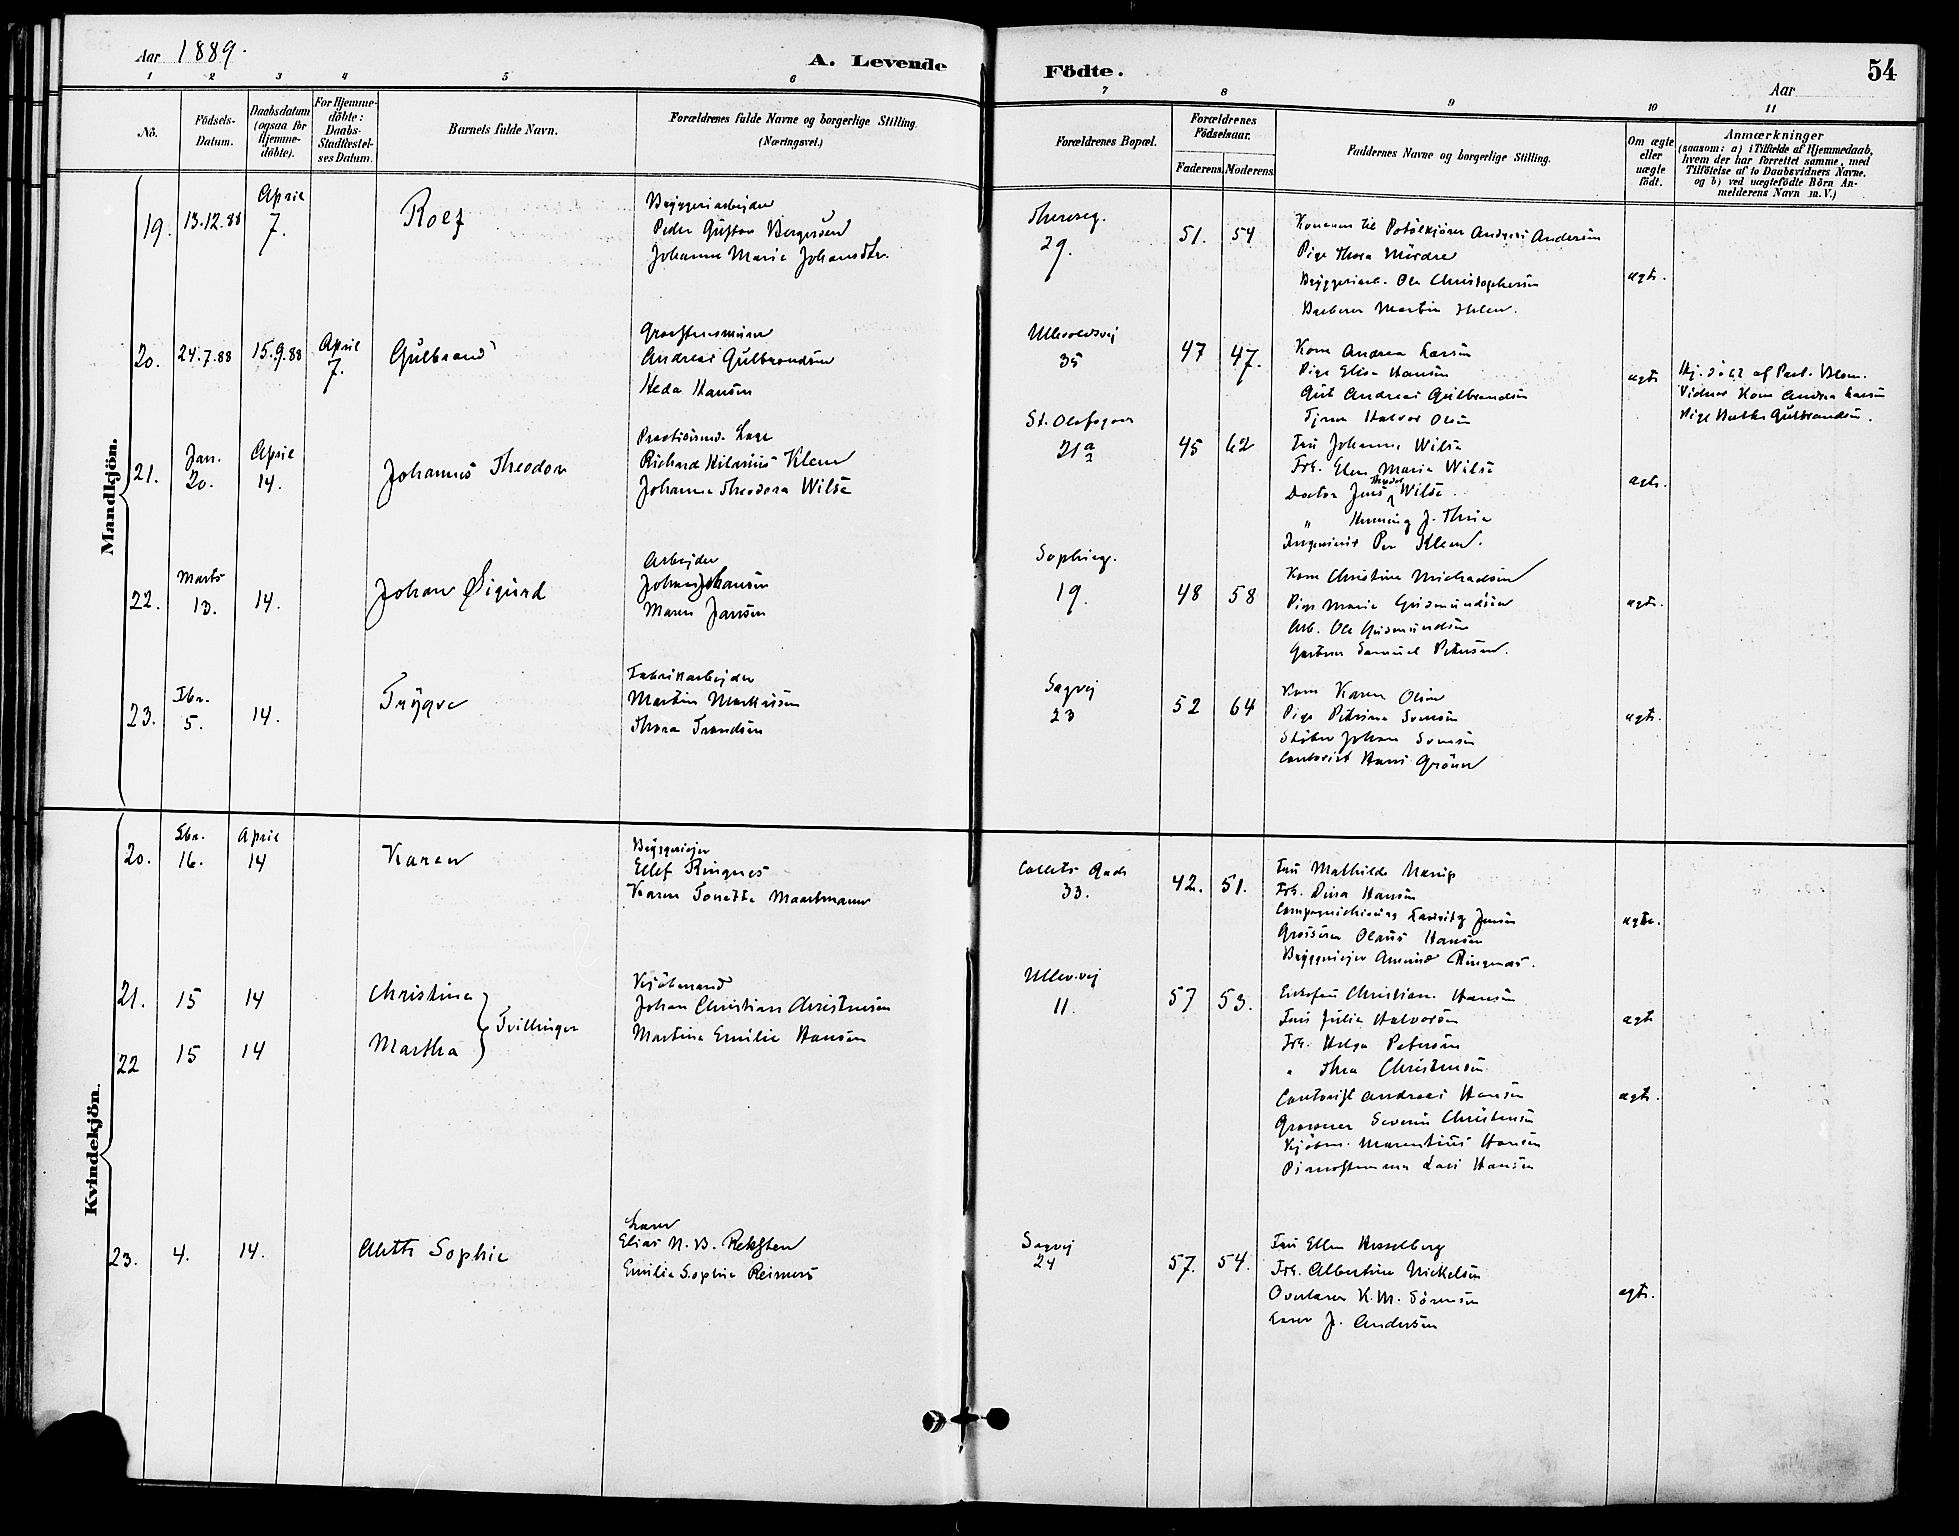 Aar 1889.
A. Levende Födte.
Aar
54
1 2 3 4 5 6 7 8 9 10 11
No.
Födsels-Datum.
Daabsdatum (ogsaa for Hjemme-döbte).
For Hjemme-döbte: Daabs-Stadfæstel-ses Datum.
Barnets fulde Navn.
Forældrenes fulde Navne og borgerlige Stilling. (Næringsvei.)
Forældrenes Bopæl.
Forældrenes Födselsaar.
Faderens. Moderens.
Faddernes Navne og borgerlige Stilling.
Om ægte eller uægte födt.
Anmærkninger
(saasom: a) i Tilfælde af Hjemmedaab,
hvem der har forrettet samme, med
Tilföielse af to Daabsvidners Navne.
og b) ved uægtefödte Börn An-
melderens Navn m.V.)
Mandkjön.
19. 13.12.88 April 7. Rolf
Bryggeriarbejder
Peder Gustav Bergersen
Johanne Marie Johansdtr.
Thereseg.
29.
51. 54
Konenen til Andersen
Pige Thora
Bryggeriarb. Ole Christophersen
Barberer Martin
ægte.
20. 24.7.88 15.9.88 April 7. Gulbrand
Andreas Gulbrandsen
Heda Hansen
Ullevoldsvej
35
47 47.
Kone Andrea Larsen
Pige Elise Hansen
Gut Andreas Gulbrandsen
Tjener Halvor Olsen
ægte
Hj. döbt af Past. Blom.
Vidner Kone Andrea Larsen
Pige Gulbrandsen.
21. Jan. 20. April 14. Johannes Theodor
Practiserend. Læge
Richard Hilarius Klem
Johanne Theodora Wilse
St. Olafsgade
21a
45 62
Fru Johanne Wilse
Frk. Ellen Marie Wilse
Doctor Jens Theodor Wilse
" Henning J.
Ingeniør Per Klem.
ægte.
22. Marts 13. 14. Johan Sigurd
Arbejder
Johan Johansen
Maren Jansen
Sophieg.
19.
48 58
Kone Christine Michaelsen
Pige Marie Gusmundsen
Arb. Ole Gusmundsen
Gartner Samuel Petersen.
ægte.
23. Fbr. 5. 14. Trygve
Fabrikarbejder
Martin Markussen
Thora Trondsen
Sagvej
23
52 64
Kone Karen Olsen
Pige Petrine Svensen
Støber Johan Svensen
Contorist Hans Grøner
ægte.
Kvindekjön.
20. Fbr. 16. April 14 Karen
Bryggeriejer
Ellef Ringnes
Karen Tonette Maartmann
Colletts Gade
33.
42. 51.
Fru Mathilde
Frk. Dina Hansen
Lauritz Jensen
Grosserer Olaus Hansen
Bryggeriejer Amund Ringnes.
ægte.
21. 15 14 Christine
22 15 14 Martha
Tvillinger
Kjøbmand
Johan Christian Christensen
Martine Emilie Hansen
Ullev.vej
11.
57 53.
Enkefru Christian. Hansen
Fru Julie Halvorsen
Frk. Helga Petersen
" Thea Christensen
Contorist Andreas Hansen
Grosserer Severin Christensen
Kjøbm. Marentius Hansen
Pianostemmer Lars Hansen
ægt
ægte.
23. 4. 14. Aleth Sophie
Lærer
Elias N. B. Reksten
Emilie Sophie Reimers
Sagvej
24
57. 54.
Fru Ellen Hesselberg
Frk. Albertine Nickelsen
Overlærer K. M. Sörensen
Lærer J. Andersen
ægte.